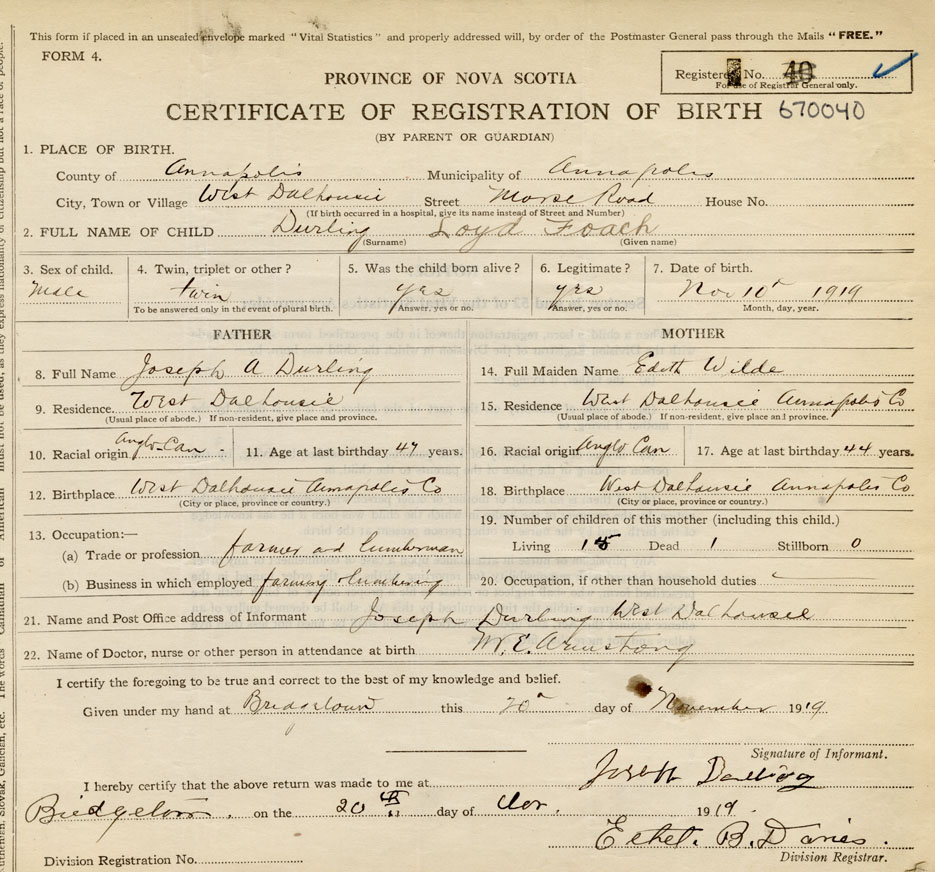 This form if placed in an unsealed envelope marked "Vital Statistics" and properly addressed will, by order of the Postmaster General pass through the Mails "FREE."
FORM 4.
PROVINCE OF NOVA SCOTIA
Registered No. 40
For use of Registrar General only.
CERTIFICATE OF REGISTRATION OF BIRTH 670040
(BY PARENT OR GUARDIAN)
1. PLACE OF BIRTH.
County of Annapolis Municipality of Annapolis
City, Town or Village West Dalhousie Street Morse Road House No.
(If birth occurred in a hospital, give its name instead of Street and Number)
2. FULL NAME OF CHILD Durling Loyd Foach
(Surname) (Given name)
3. Sex of child. 4. Twin, triplet or other? 5. Was the child born alive? 6. Legitimate? 7. Date of birth.
Male twin yes yes Nov 10 1919
To be answered only in the event of plural birth. Answer, yes or no. Answer, yes or no. Month, day, year.
FATHER MOTHER
8. Full Name Joseph A Durling 14. Full Maiden Name Edith Wilde
9. Residence. West Dalhousie 15. Residence West Dalhousie Annapolis Co
(Usual place of abode.) If non-resident, give place and province. (Usual place of abode.) If non-resident, give place and province.
10. Racial origin Anglo-Can. 11. Age at last birthday 47 years. 16. Racial origin Anglo Can 17. Age at last birthday 44 years.
12. Birthplace West Dalhousie Annapolis Co 18. Birthplace West Dalhousie Annapolis Co
(City or place, province or country.) (City or place, province or country.)
13. Occupation:— 19. Number of children of this mother (including this child.)
(a) Trade or profession farmer and lumberman Living 15 Dead 1 Stillborn 0
(b) Business in which employed farming lumbering 20. Occupation, if other than household duties
21. Name and Post Office address of Informant Joseph Durling West Dalhousie
22. Name of Doctor, nurse or other person in attendance at birth M.E. Armstrong
I certify the foregoing to be true and correct to the best of my knowledge and belief.
Given under my hand at Bridgetown this 20 day of November 1919
Signature of Informant.
I hereby certify that the above return was made to me at Joseph Durling
Bridgetown. on the 20th day of Nov. 1919.
Ethel. B. Davies.
Division Registration No. Division Registrar.